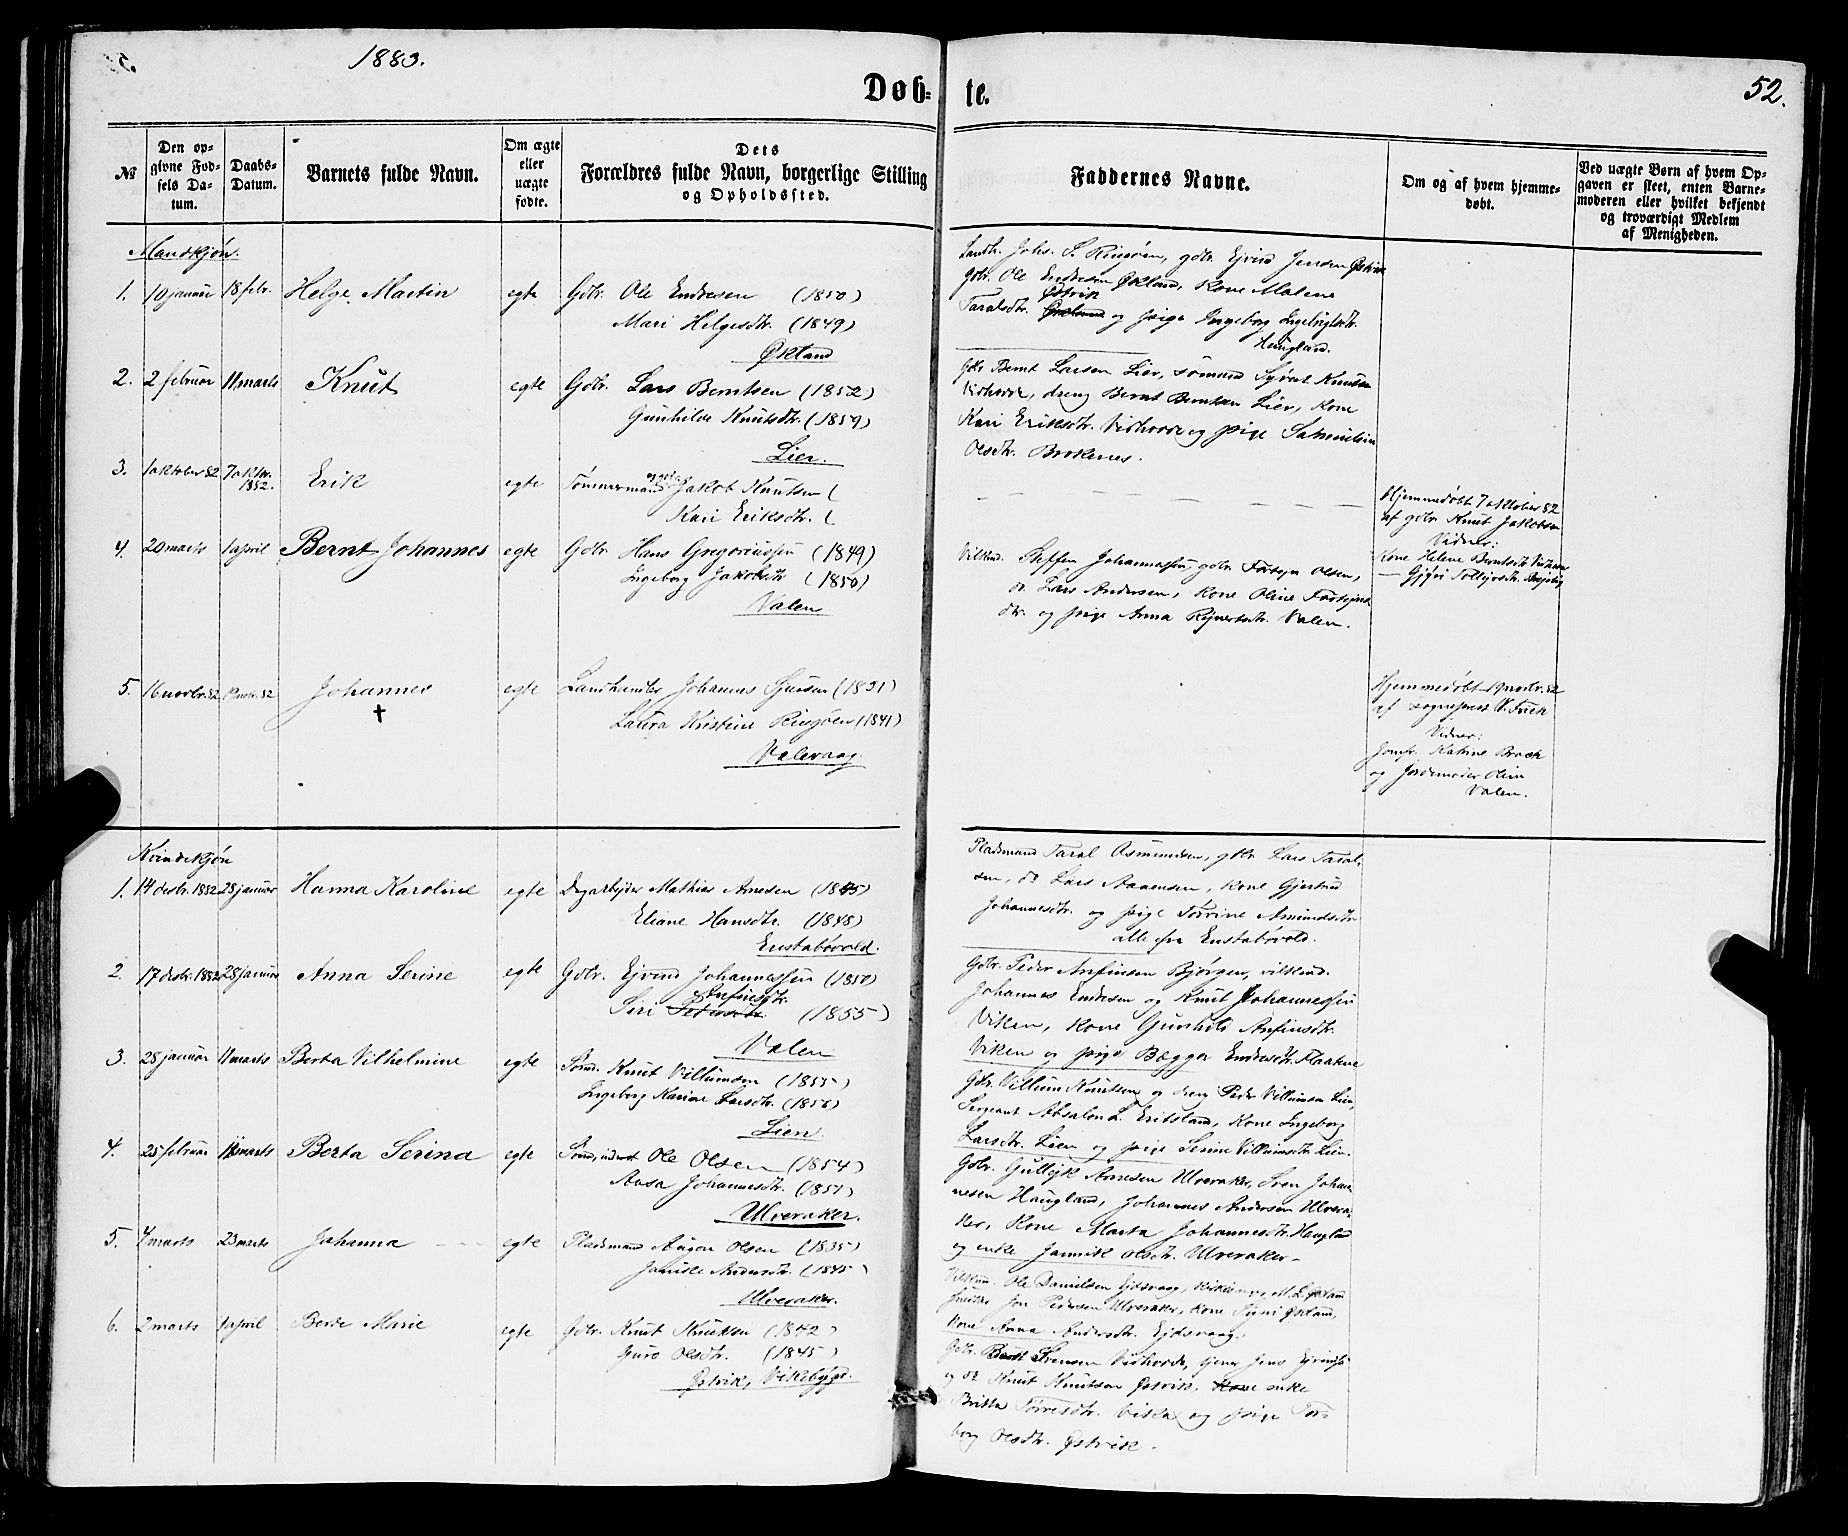 1883.
Døb-
te.
52.
№
Den op-
givne Fød-
sels Da-
tum.
Daabs-
Datum.
Barnets fulde Navn.
Om ægte
eller
uægte
fødte.
Dets
Forældres fulde Navn, borgerlige Stilling
og Opholdssted.
Faddernes Navne.
Om og af hvem hjemme-
døbt.
Ved uægte Børn af hvem Op-
gaven er skeet, enten Barne-
moderen eller hvilket bekjendt
og troværdigt Medlem
af Menigheden.
Mandkjøn.
1. 10 januar 18 febr. Helge Martin egte Gdbr. Ole Endresen (1850)
Mari Helgesdtr. (1849)
Økland
Landh. Johs. S. Ringøen, gdbr. Ejvind Jensen Østvik
Gdbr. Ole Endresen Økland, Kone Malene
Østvik
Taraldsdtr. og pige Ingeborg Ingebrigtsdtr.
Haugland.
2. 2 februar 11 marts Knut egte Gdbr. Lars Berntsen (1852)
Gunhilde Knutsdtr. (1859)
Lier.
Gdbr Bernt Larsen Lier, sømand Syvert Knutsen
Vidhovde, dreng Bernt Berntsen Lier, Kone
Kari Eriksdtr. Vidhovde og pige
Olsdtr. Brekenes.
3. 1 oktober 82 7 oktbr. 1882. Erik egte Tømmermand Jakob Knutsen (
Kari Eriksdtr. (
Hjemmedøbt 7 oktober 82
af gdbr Knut Jakobsen
Vidner:
Kone Helene Berntsdtr
4. 20 marts 1 april Bernt Johannes egte Gdbr Hans Gregoriussen (1849)
Ingeborg Jakobsdtr (1850)
Valen
Steffen Johannessen gdbr Torbjn Olsen,
do. Lars Andersen, Kone Oline
dtr. og pige Anna Rejnertsdtr. Valen.
5. 16 novbr. 82 19 novbr. 82 Johannes egte Landhandler Johannes Sjursen (1831)
✝
Laura Kristine Ringøen (1841)
Valevaag
Hjemmedøbt 19 novbr. 82
af sogneprest V. Frich
Vidner:
Jomfr. Katrine
og Jordemoder Oline
Valen.
Kvindekjøn
1. 14 decbr. 1882 28 januar Hanna Karoline egte Dagarbejder Mathias Arnesen (1845)
Eliane Hansdtr. (1848)
Enstabøvold.
Pladsmand Taral Asmundsen, gdbr Lars Taral-
sen, do Lars Aanensen, kone Gjertrud
Johannesdtr. og pige Torrine Amundsdtr
alle fra Enstabøvold.
2. 17 decbr. 1882 28 januar Anna Serine egte Gdbr. Ejvind Johannessen (1850)
Anfinsdtr.
Siri (1855)
Valen
Gdbr. Peder Anfinsen Bjørgen, vilkmd.
Johannes Endresen og Knut Johannessen
Viken, Kone Gunhild Anfinsdtr.
Viken og pige Bægga Endresdtr. Flaakne
3. 28 januar 11 marts Berta Vilhelmine egte Sømd. Knut Villumsen (1855)
Ingeborg Karine Larsdtr. (1856)
Lien.
Gdbr. Villum Knutsen og dreng Peder Villumsen Lien,
Sergeant Absalon L. Eritsland, Kone Ingeborg
Larsdtr. Lien og pige Serine Villumsdtr Lien.
4. 25 februar 18 marts Berta Serina egte Ole Olsen (1854)
Aasa Johannesdtr. (1851)
Ulveraker.
Gdbr. Gulleyk Arnesen Ulveraker, Sven Johan-
nesen Haugland, Johannes Andersen Ulvera-
ker, Kone Marta Johannesdtr. Haugland
og enke Jannik Olsdtr. Ulveraker.
5. 4 marts 23 marts Johanna egte Pladsmand Augon Olsen (1835)
Janike Andersdtr. (1845)
Ulveraker.
Vilkmd. Ole Danielsen Ejdsvaag, Kirkesanger M. L. Økland
Jon Pedersen Ulveraker, Kone Synni Økland,
Kone Anna Andersdtr. Ejdsvaag.
6. 2 marts 1 april Berte Marie egte Gdbr. Knut Knutsen (1842)
Guro Olsdtr. (1845)
Østvik, Vikebygd.
Gdbr. Svensen Vidhovde, tjener Jens Ejvindsen
og do Knut Knutsen Østvik, enke
Britta Torresdtr. Viska og pige Tor-
borg Olsdtr. Østvik.